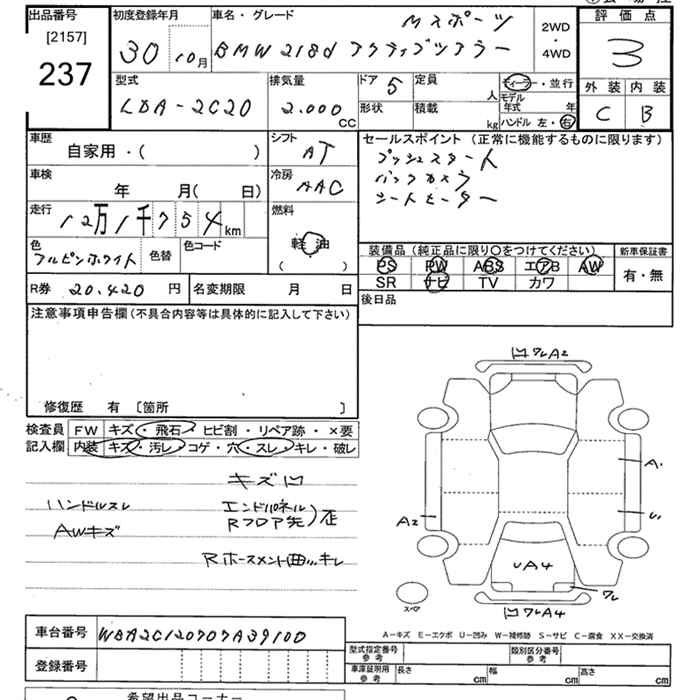 出品番号
[2157]
237
初度登録年月
30 10月
車名・グレード
Mスポーツ
BMW 218d アクティブツアラー
2WD
・
4WD
評価点
3
外装 内装
C B
型式
LDA-2C20
排気量
2.000
CC
ドア 5
形状
定員
人
積載
kg
ディーラー・並行
モデル
年式 年
ハンドル 左・右
車歴
自家用・( )
シフト
AT
車検
年 月( 日)
冷房
AAC
走行
12万1千754km
燃料
軽油
( )
色
アルピンホワイト
色替
色コード
R券 20.420 円
名変期限 月 日
セールスポイント (正常に機能するものに限ります)
プッシュスタート
バックカメラ
シートヒーター
装備品 (純正品に限り○をつけてください)
PS PW ABS エアB AW
SR ナビ TV カワ
新車保証書
有・無
後日品
注意事項申告欄 (不具合内容等は具体的に記入して下さい)
修復歴 有 〔箇所 〕
検査員
記入欄
FW キズ・飛石・ヒビ割・リペア跡・×要
内装 キズ・汚レ・コゲ・穴・スレ・キレ・破レ
キズ凹
ハンドルスレ
AWキズ
エンドパネル
Rフロア先)歪
Rホースメント曲..キレ
凹ワレA2
A1
A2
UA4
ワレ
凹ワレA4
スペア
A-キズ E-エクボ U-凹み W-補修跡 S-サビ C-腐食 XX-交換済
車台番号 WBA2C120707A39100
登録番号
型式指定番号
参考
類別区分番号
参考
車庫証明用
参考
長さ cm 幅 cm 高さ cm
希望出品コーナー